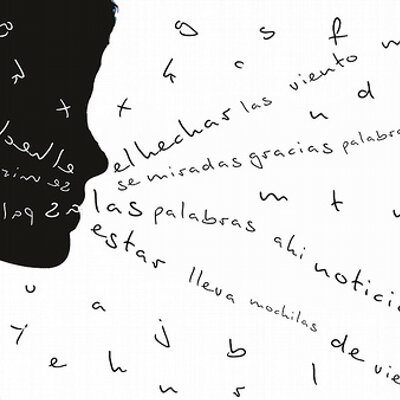 g s f m
k c d
x n
el hechar las viento
se miradas gracias palabra
m t
las palabras ahi notici
estar lleva mochilas de vie
u a
y j b
e h l
n r